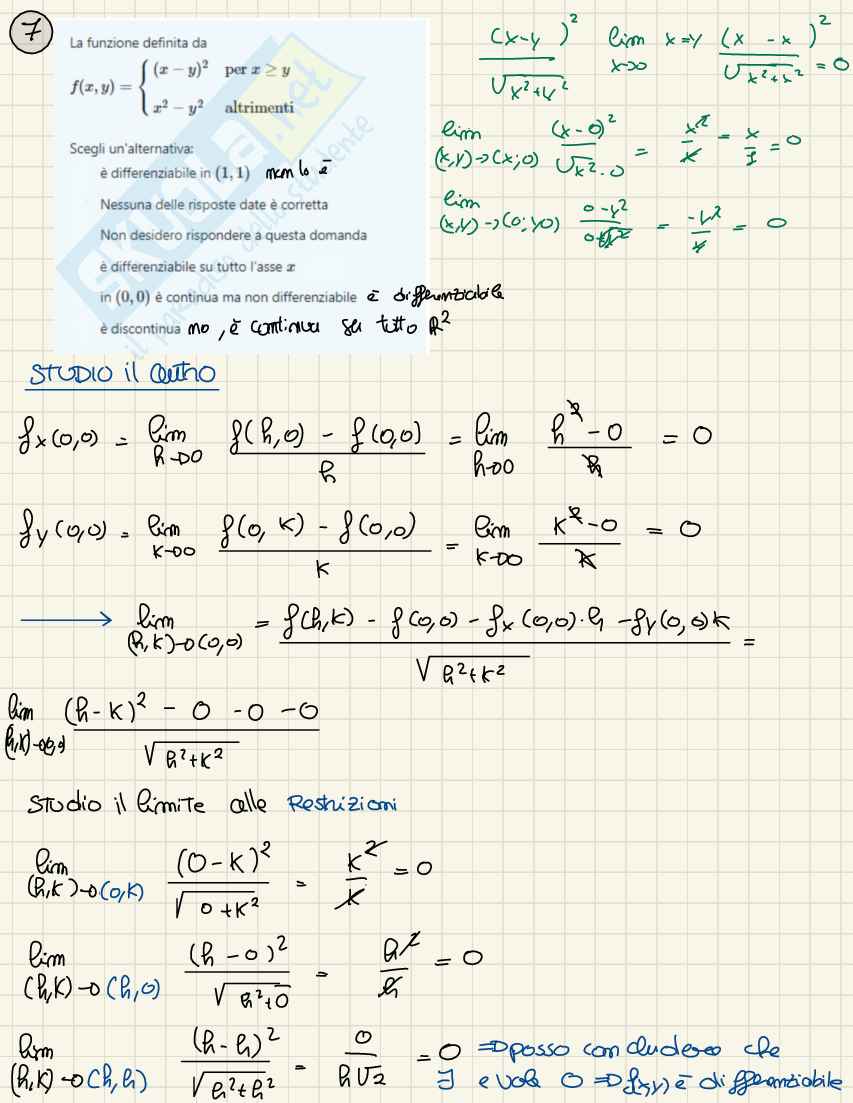 7
La funzione definita da
f(x, y) = { (x − y)² per x ≥ y
x² − y² altrimenti
Scegli un'alternativa:
è differenziabile in (1, 1) non lo è
Nessuna delle risposte date è corretta
Non desidero rispondere a questa domanda
è differenziabile su tutto l'asse x
in (0, 0) è continua ma non differenziabile è differenziabile
è discontinua no, è continua su tutto R²
(x-y)² / √x²+y² lim x→0 x=y (x-x)² / √x²+x² = 0
lim (x,y)→(x;0) (x-0)² / √x²·0 = x² / x = x / 1 = 0
lim (x,y)→(0;y0) 0-y² / 0+√y² = -y² / y = 0
STUDIO il
fx(0,0) = lim h→0 f(h,0) - f(0,0) / h = lim h→0 h² - 0 / h = 0
fy(0,0) = lim k→0 f(0,k) - f(0,0) / k = lim k→0 k² - 0 / k = 0
→ lim (h,k)→(0,0) = f(h,k) - f(0,0) - fx(0,0)·h - fy(0,0)k / √h²+k² =
lim (h,k)→(0,0) (h-k)² - 0 - 0 - 0 / √h²+k²
Studio il limite alle Restrizioni
lim (h,k)→(0,k) (0-k)² / √0+k² = k² / k = 0
lim (h,k)→(h,0) (h-0)² / √h²+0 = h² / h = 0
lim (h,k)→(h,h) (h-h)² / √h²+h² = 0 / h√2 = 0 ⇒ posso concludere che
∃ e vale 0 ⇒ f(x,y) è differenziabile
skuola.net
il paradiso dello studente